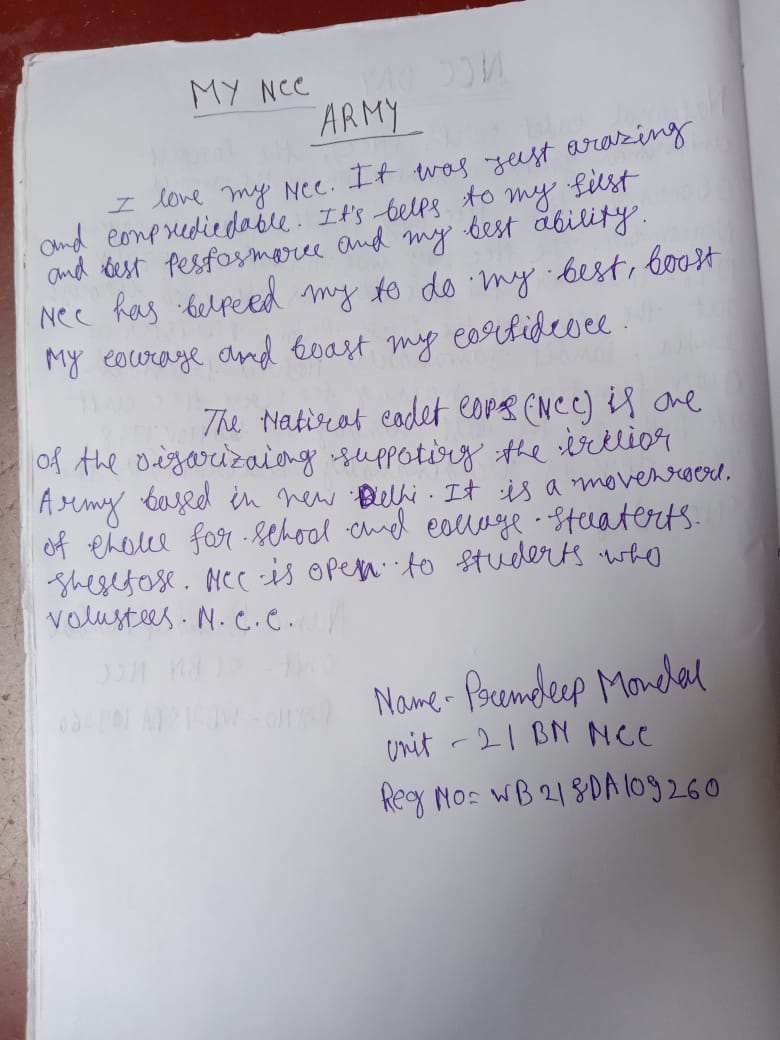 MY NCC
ARMY
I love my NCC. It was just arazing
and conprediedable. It's belps to my first
and best Pesfosmarce and my best ability.
NCC has belpeed my to do my best, boost
My courage and boast my corfidence.
The Natirat cadet COPS (NCC) is one
of the oigarizaiong suppoting the irllior
Army based in new Delhi. It is a movenroert.
of choice for school and collage stuaterts.
shesefose. NCC is open to studerts who
volustees. N.C.C.
Name - Premdeep Mondal
Unit - 21 BN NCC
Reg No = WB218DA109260